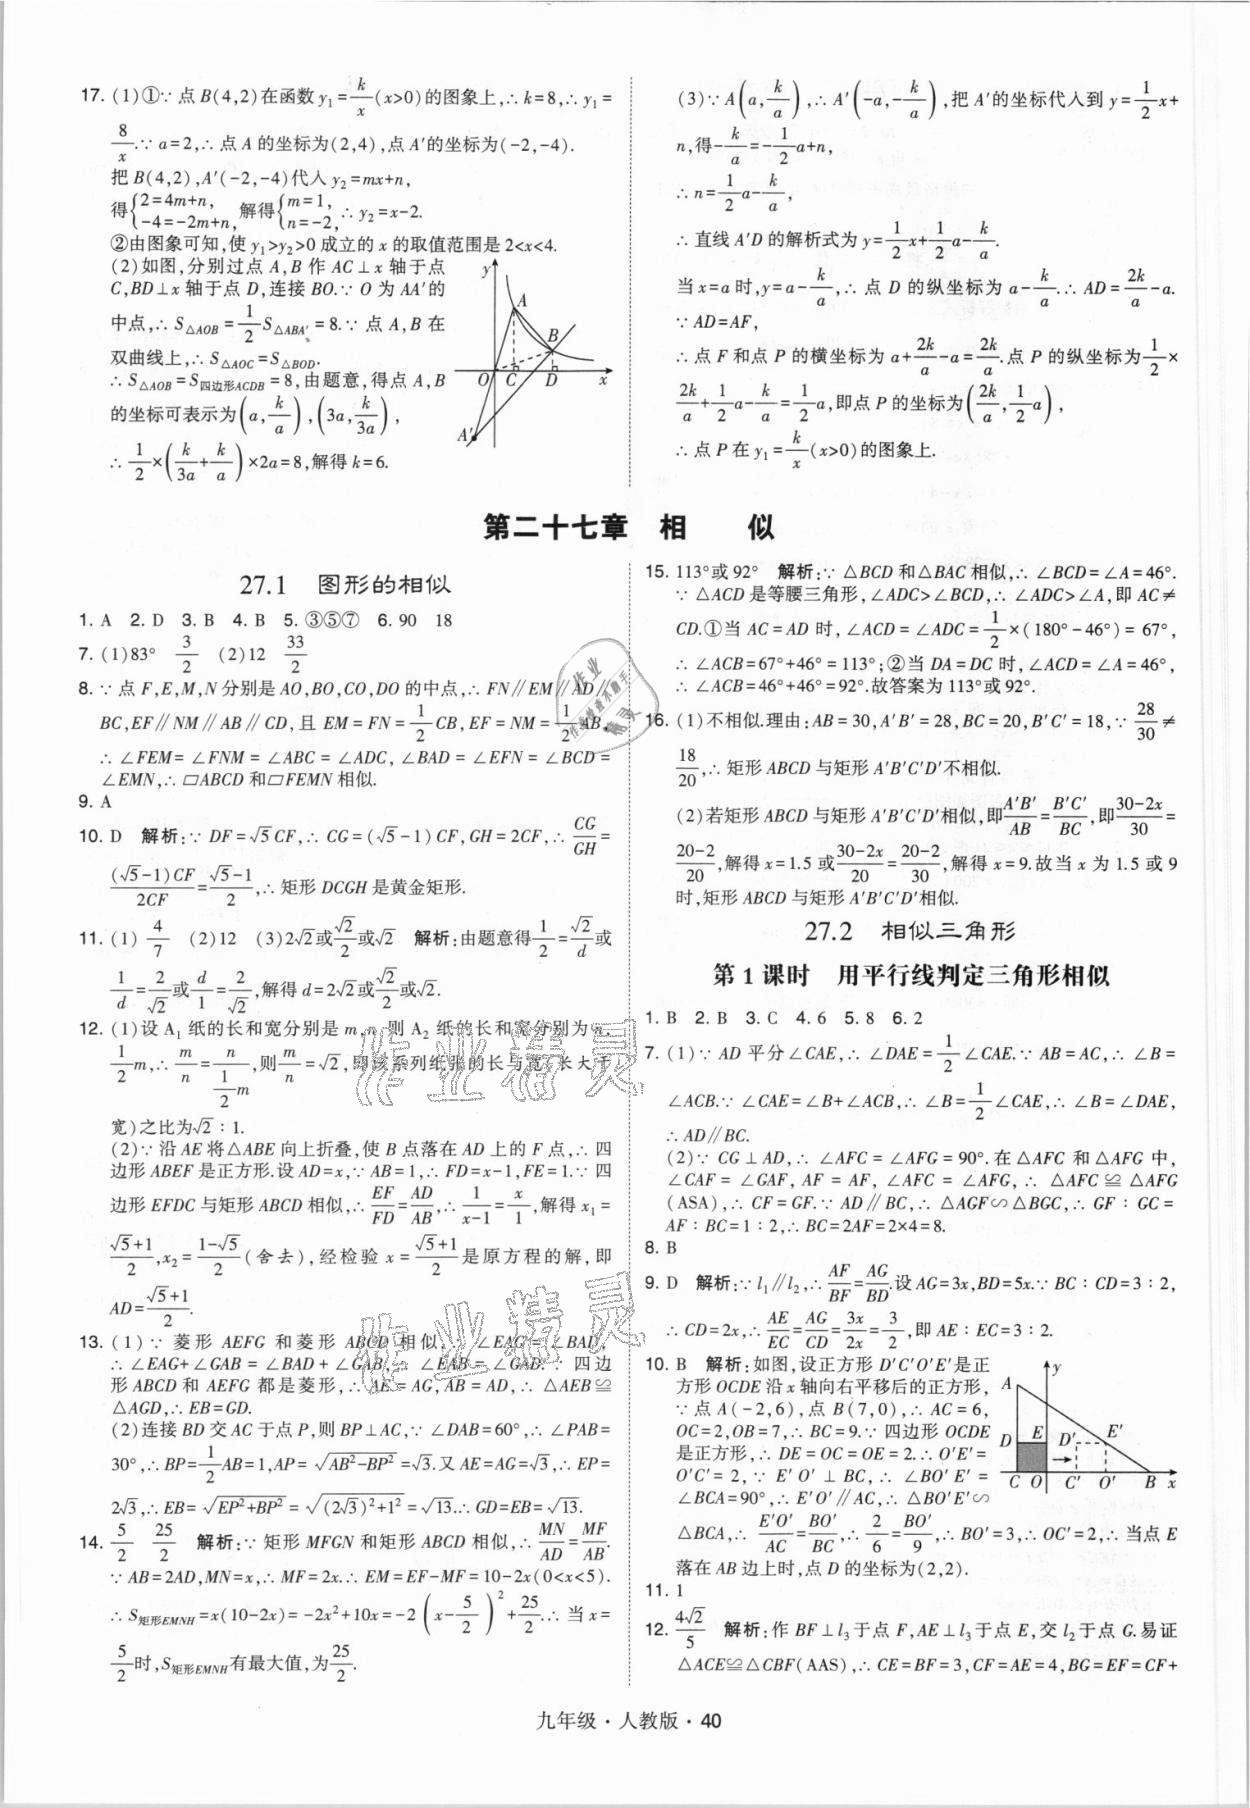 17. (1)①∵点B(4,2)在函数y₁=k/x(x>0)的图象上,∴k=8,∴y₁=
8/x.∵a=2,∴点A的坐标为(2,4),点A′的坐标为(-2,-4).
把B(4,2),A′(-2,-4)代入y₂=mx+n,
得{2=4m+n, -4=-2m+n, 解得{m=1, n=-2, ∴y₂=x-2.
②由图象可知,使y₁>y₂>0成立的x的取值范围是2<x<4.
(2)如图,分别过点A,B作AC⊥x轴于点
C,BD⊥x轴于点D,连接BO.∵O为AA′的
中点,∴S△AOB=1/2S△ABA′=8.∵点A,B在
双曲线上,∴S△AOC=S△BOD.
∴S△AOB=S四边形ACDB=8,由题意,得点A,B
的坐标可表示为(a,k/a),(3a,k/3a),
∴1/2×(k/3a+k/a)×2a=8,解得k=6.
y
A
B
O C D x
A′
(3)∵A(a,k/a),∴A′(-a,-k/a),把A′的坐标代入到y=1/2x+
n,得-k/a=-1/2a+n,
∴n=1/2a-k/a,
∴直线A′D的解析式为y=1/2x+1/2a-k/a.
当x=a时,y=a-k/a,∴点D的纵坐标为a-k/a.∴AD=2k/a-a.
∵AD=AF,
∴点F和点P的横坐标为a+2k/a-a=2k/a.点P的纵坐标为1/2×
2k/a+1/2a-k/a=1/2a,即点P的坐标为(2k/a,1/2a),
∴点P在y₁=k/x(x>0)的图象上.
第二十七章 相 似
27.1 图形的相似
1. A 2. D 3. B 4. B 5. ③⑤⑦ 6. 90 18
7. (1)83° 3/2 (2)12 33/2
8. ∵点F,E,M,N分别是AO,BO,CO,DO的中点,∴FN∥EM∥AD∥
BC,EF∥NM∥AB∥CD,且EM=FN=1/2CB,EF=NM=1/2AB,
∴∠FEM=∠FNM=∠ABC=∠ADC,∠BAD=∠EFN=∠BCD=
∠EMN,∴▱ABCD和▱FEMN相似.
9. A
10. D 解析:∵DF=√5CF,∴CG=(√5-1)CF,GH=2CF,∴CG/GH=
(√5-1)CF/2CF=√5-1/2,∴矩形DCGH是黄金矩形.
11. (1) 4/7 (2)12 (3)2√2或√2/2或√2 解析:由题意得1/2=√2/d或
1/d=2/√2或d/1=2/√2,解得d=2√2或√2/2或√2.
12. (1)设A₁纸的长和宽分别是m,n,则A₂纸的长和宽分别为n,
1/2m,∴m/n=n/(1/2m),则m/n=√2,即该系列纸张的长与宽(长大于
宽)之比为√2∶1.
(2)∵沿AE将△ABE向上折叠,使B点落在AD上的F点,∴四
边形ABEF是正方形.设AD=x,∵AB=1,∴FD=x-1,FE=1.∵四
边形EFDC与矩形ABCD相似,∴EF/FD=AD/AB,∴1/(x-1)=x/1,解得x₁=
(√5+1)/2,x₂=(1-√5)/2(舍去),经检验x=(√5+1)/2是原方程的解,即
AD=(√5+1)/2.
13. (1)∵菱形AEFG和菱形ABCD相似,∴∠EAG=∠BAD,
∴∠EAG+∠GAB=∠BAD+∠GAB,∴∠EAB=∠GAD.∵四边
形ABCD和AEFG都是菱形,∴AE=AG,AB=AD,∴△AEB≌
△AGD,∴EB=GD.
(2)连接BD交AC于点P,则BP⊥AC,∵∠DAB=60°,∴∠PAB=
30°,∴BP=1/2AB=1,AP=√(AB²-BP²)=√3.又AE=AG=√3,∴EP=
2√3,∴EB=√(EP²+BP²)=√((2√3)²+1²)=√13.∴GD=EB=√13.
14. 5/2 25/2 解析:∵矩形MFGN和矩形ABCD相似,∴MN/AD=MF/AB.
∵AB=2AD,MN=x,∴MF=2x.∴EM=EF-MF=10-2x(0<x<5).
∴S矩形EMNH=x(10-2x)=-2x²+10x=-2(x-5/2)²+25/2.∴当x=
5/2时,S矩形EMNH有最大值,为25/2.
15. 113°或92° 解析:∵△BCD和△BAC相似,∴∠BCD=∠A=46°.
∵△ACD是等腰三角形,∠ADC>∠BCD,∴∠ADC>∠A,即AC≠
CD.①当AC=AD时,∠ACD=∠ADC=1/2×(180°-46°)=67°,
∴∠ACB=67°+46°=113°;②当DA=DC时,∠ACD=∠A=46°,
∴∠ACB=46°+46°=92°.故答案为113°或92°.
16. (1)不相似.理由:AB=30,A′B′=28,BC=20,B′C′=18,∵28/30≠
18/20,∴矩形ABCD与矩形A′B′C′D′不相似.
(2)若矩形ABCD与矩形A′B′C′D′相似,即A′B′/AB=B′C′/BC,即(30-2x)/30=
(20-2)/20,解得x=1.5或(30-2x)/20=(20-2)/30,解得x=9.故当x为1.5或9
时,矩形ABCD与矩形A′B′C′D′相似.
27.2 相似三角形
第1课时 用平行线判定三角形相似
1. B 2. B 3. C 4. 6 5. 8 6. 2
7. (1)∵AD平分∠CAE,∴∠DAE=1/2∠CAE.∵AB=AC,∴∠B=
∠ACB.∵∠CAE=∠B+∠ACB,∴∠B=1/2∠CAE,∴∠B=∠DAE,
∴AD∥BC.
(2)∵CG⊥AD,∴∠AFC=∠AFG=90°.在△AFC和△AFG中,
∠CAF=∠GAF,AF=AF,∠AFC=∠AFG,∴△AFC≌△AFG
(ASA),∴CF=GF.∵AD∥BC,∴△AGF∽△BGC,∴GF∶GC=
AF∶BC=1∶2,∴BC=2AF=2×4=8.
8. B
9. D 解析:∵l₁∥l₂,∴AF/BF=AG/BD.设AG=3x,BD=5x.∵BC∶CD=3∶2,
∴CD=2x,∴AE/EC=AG/CD=3x/2x=3/2,即AE∶EC=3∶2.
10. B 解析:如图,设正方形D′C′O′E′是正
方形OCDE沿x轴向右平移后的正方形,
∵点A(-2,6),点B(7,0),∴AC=6,
OC=2,OB=7,∴BC=9.∵四边形OCDE
是正方形,∴DE=OC=OE=2.∴O′E′=
O′C′=2,∵E′O′⊥BC,∴∠BO′E′=
∠BCA=90°,∴E′O′∥AC,∴△BO′E′∽
△BCA,∴E′O′/AC=BO′/BC,∴2/6=BO′/9,∴BO′=3,∴OC′=2,∴当点E
落在AB边上时,点D的坐标为(2,2).
A y
D E D′ E′
C O C′ O′ B x
11. 1
12. 4√2/5 解析:作BF⊥l₃于点F,AE⊥l₃于点E,交l₂于点G.易证
△ACE≌△CBF(AAS),∴CE=BF=3,CF=AE=4,BG=EF=CF+
九年级·人教版·40
作业精灵
作业精灵
作业精灵